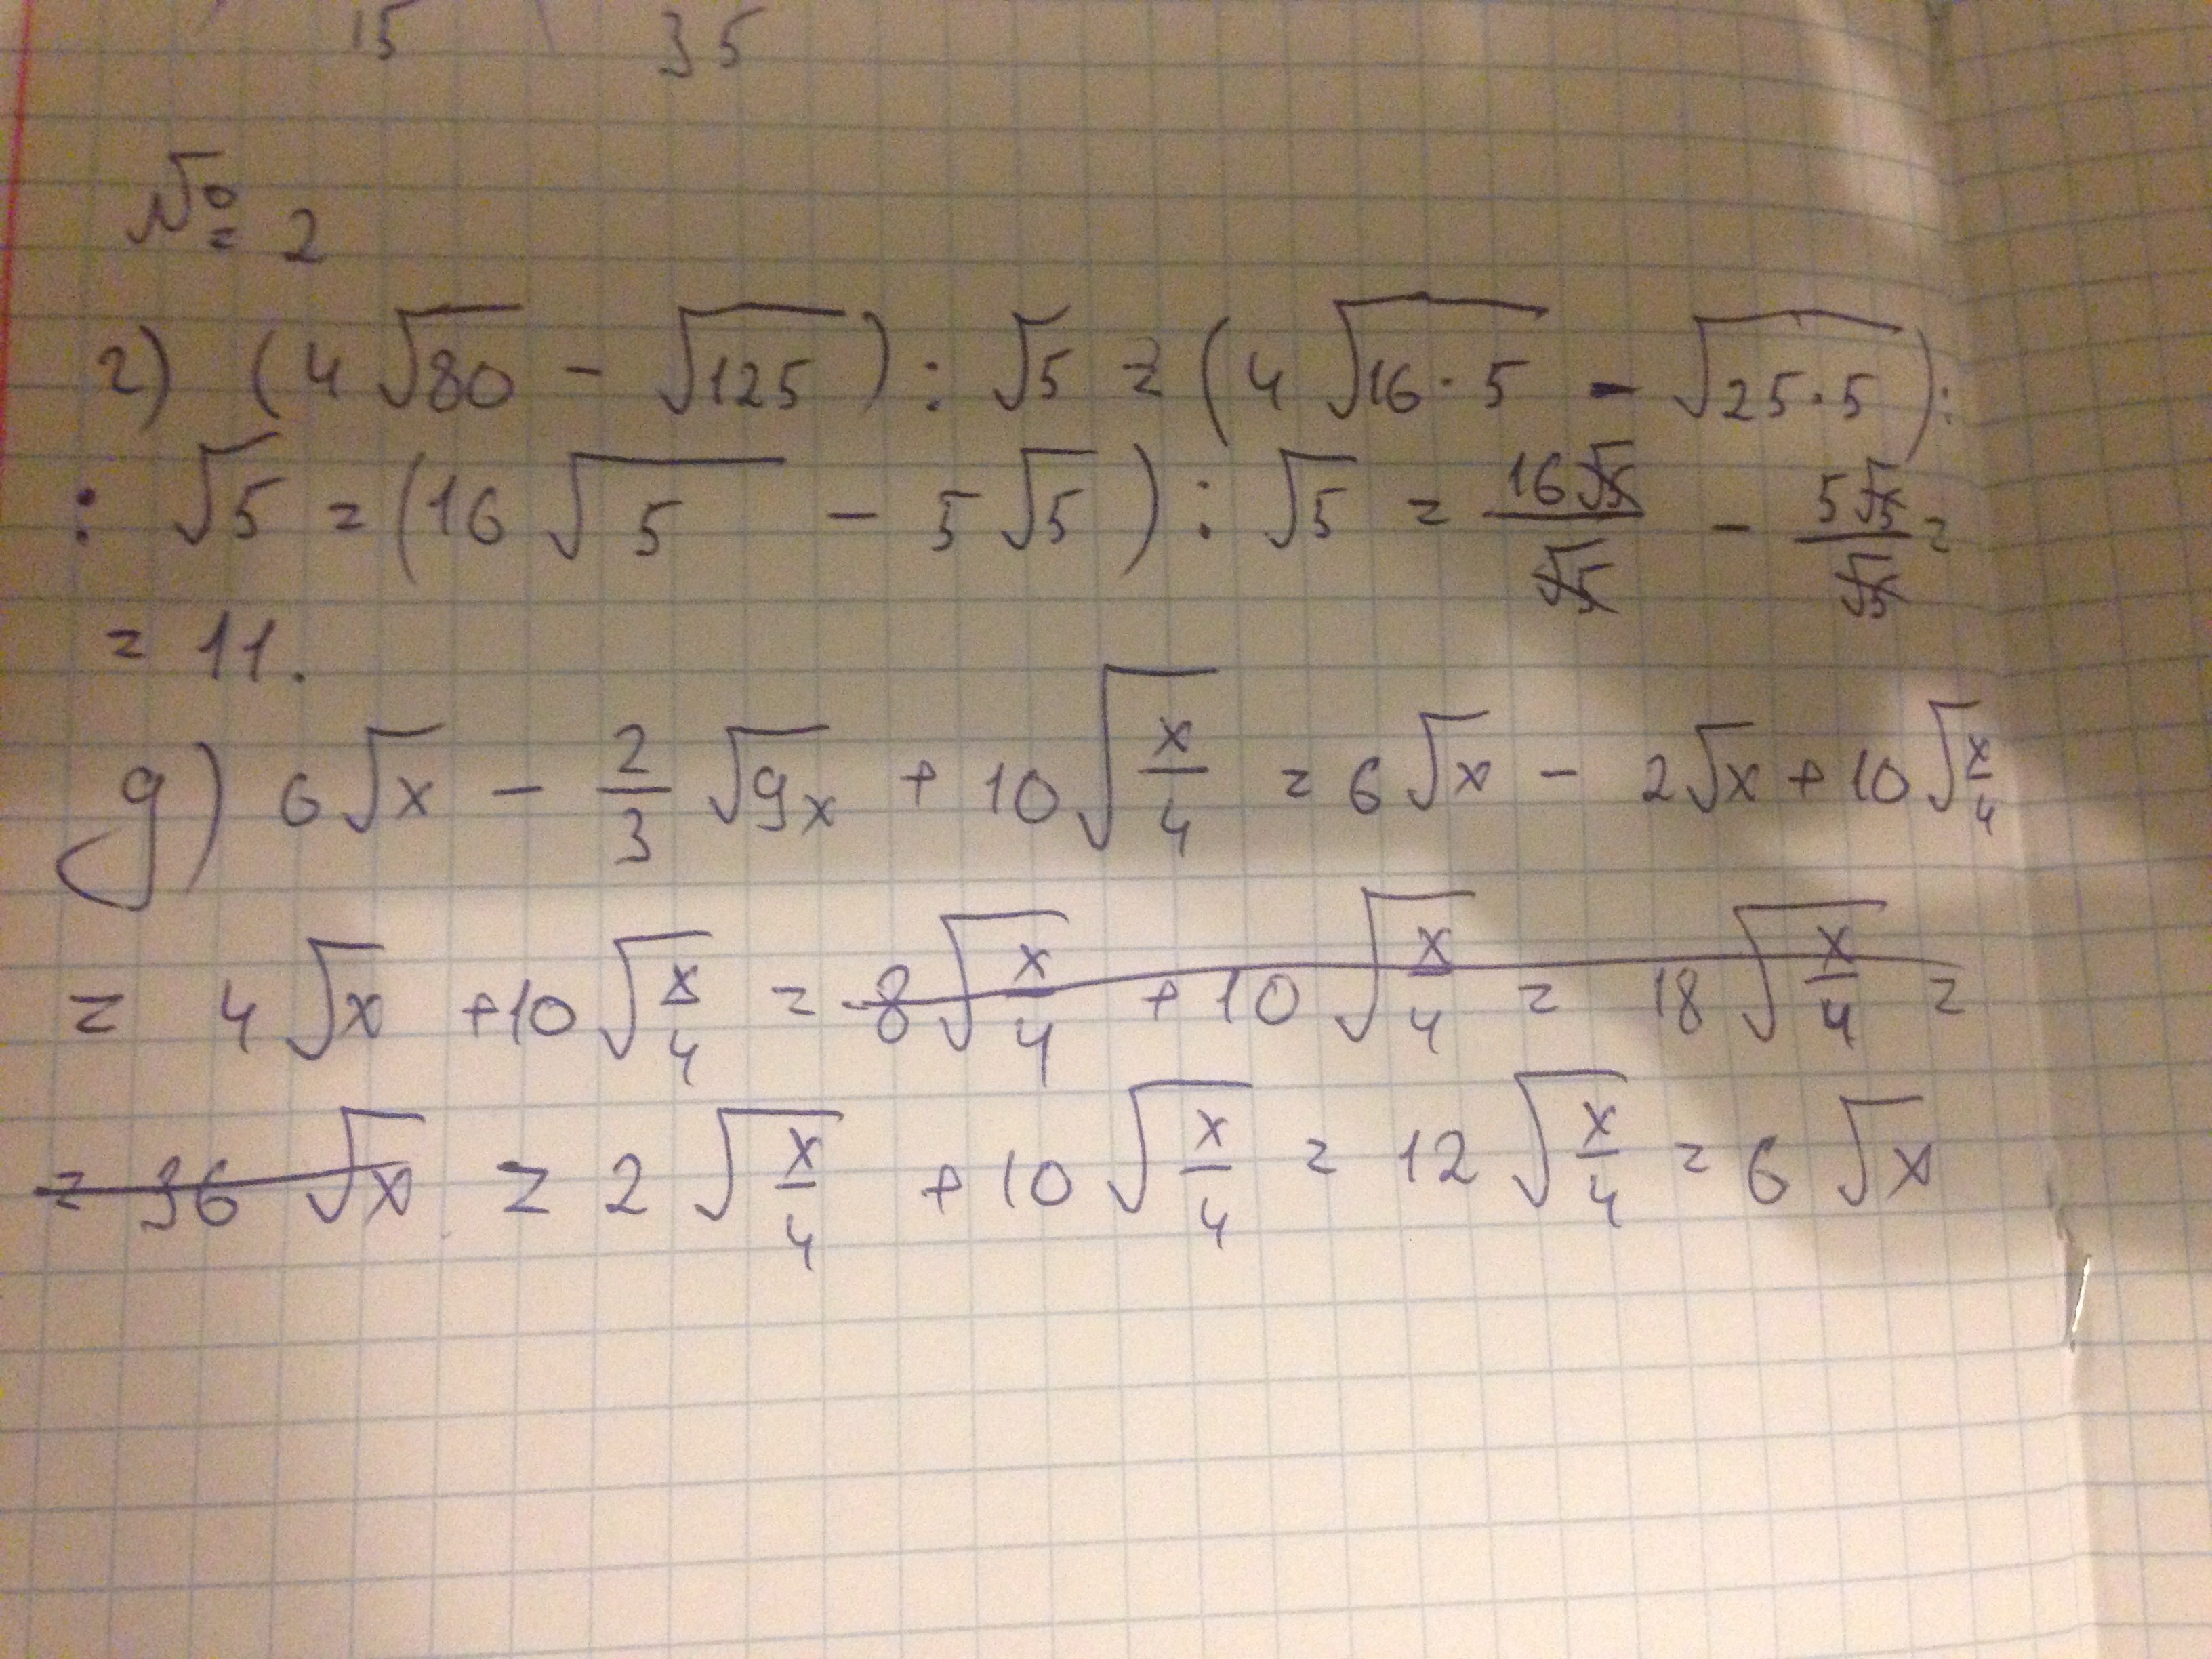 15 35
№ 2
г) (4√80 - √125) : √5 = (4√16·5 - √25·5) :
: √5 = (16√5 - 5√5) : √5 = 16√5/√5 - 5√5/√5 =
= 11.
д) 6√x - 2/3 √9x + 10√x/4 = 6√x - 2√x + 10√x/4
= 4√x + 10√x/4 = 8√x/4 + 10√x/4 = 18√x/4 =
= 36√x = 2√x/4 + 10√x/4 = 12√x/4 = 6√x